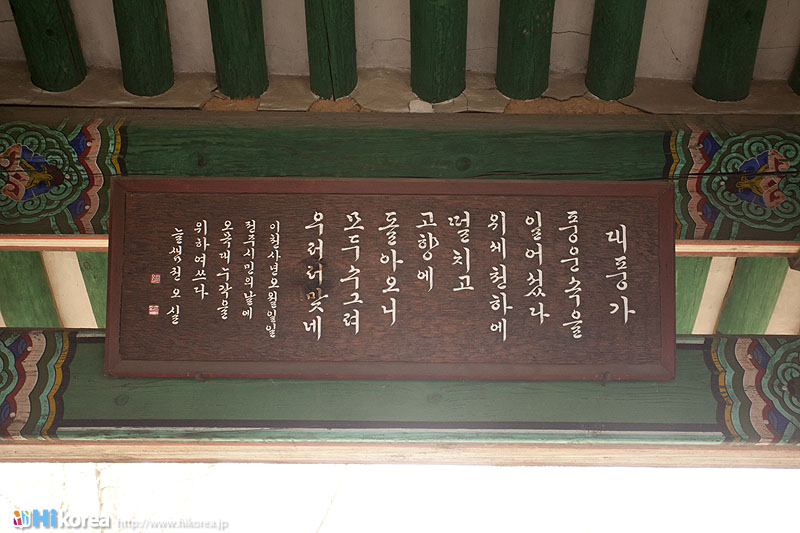 대풍가
풍운속을
일어섰다
위세천하에
떨치고
고향에
돌아오니
모두수그려
우러러맞네
이천사년오월일일
전주시민의날에
오목대누각을
위하여쓰다
늘샘권오실
Hikorea http://www.hikorea.jp